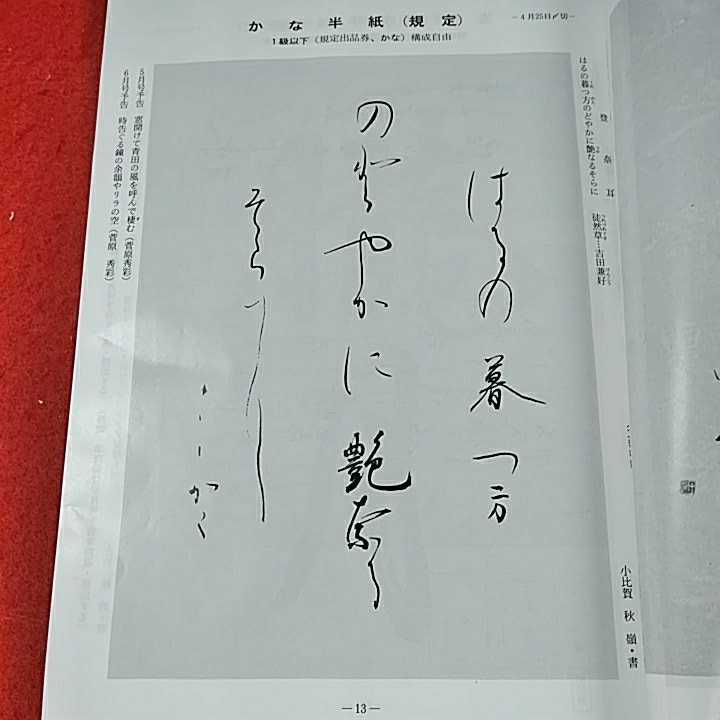 かな半紙（規定）
―4月25日〆切―
1級以下（規定出品券、かな）構成自由
登 奈 耳
はるの暮つ方のどやかに艶なるそらに
徒然草…吉田兼好
つれづれぐさ
けんこう
はるの暮つ方
の登やかに艶奈る
そら
かく
小比賀 秋嶺・書
5月号予告 窓開けて青田の風を呼んで棲む（菅原 秀彩）
6月号予告 時告ぐる鐘の余韻やリラの空（菅原 秀彩）
―13―